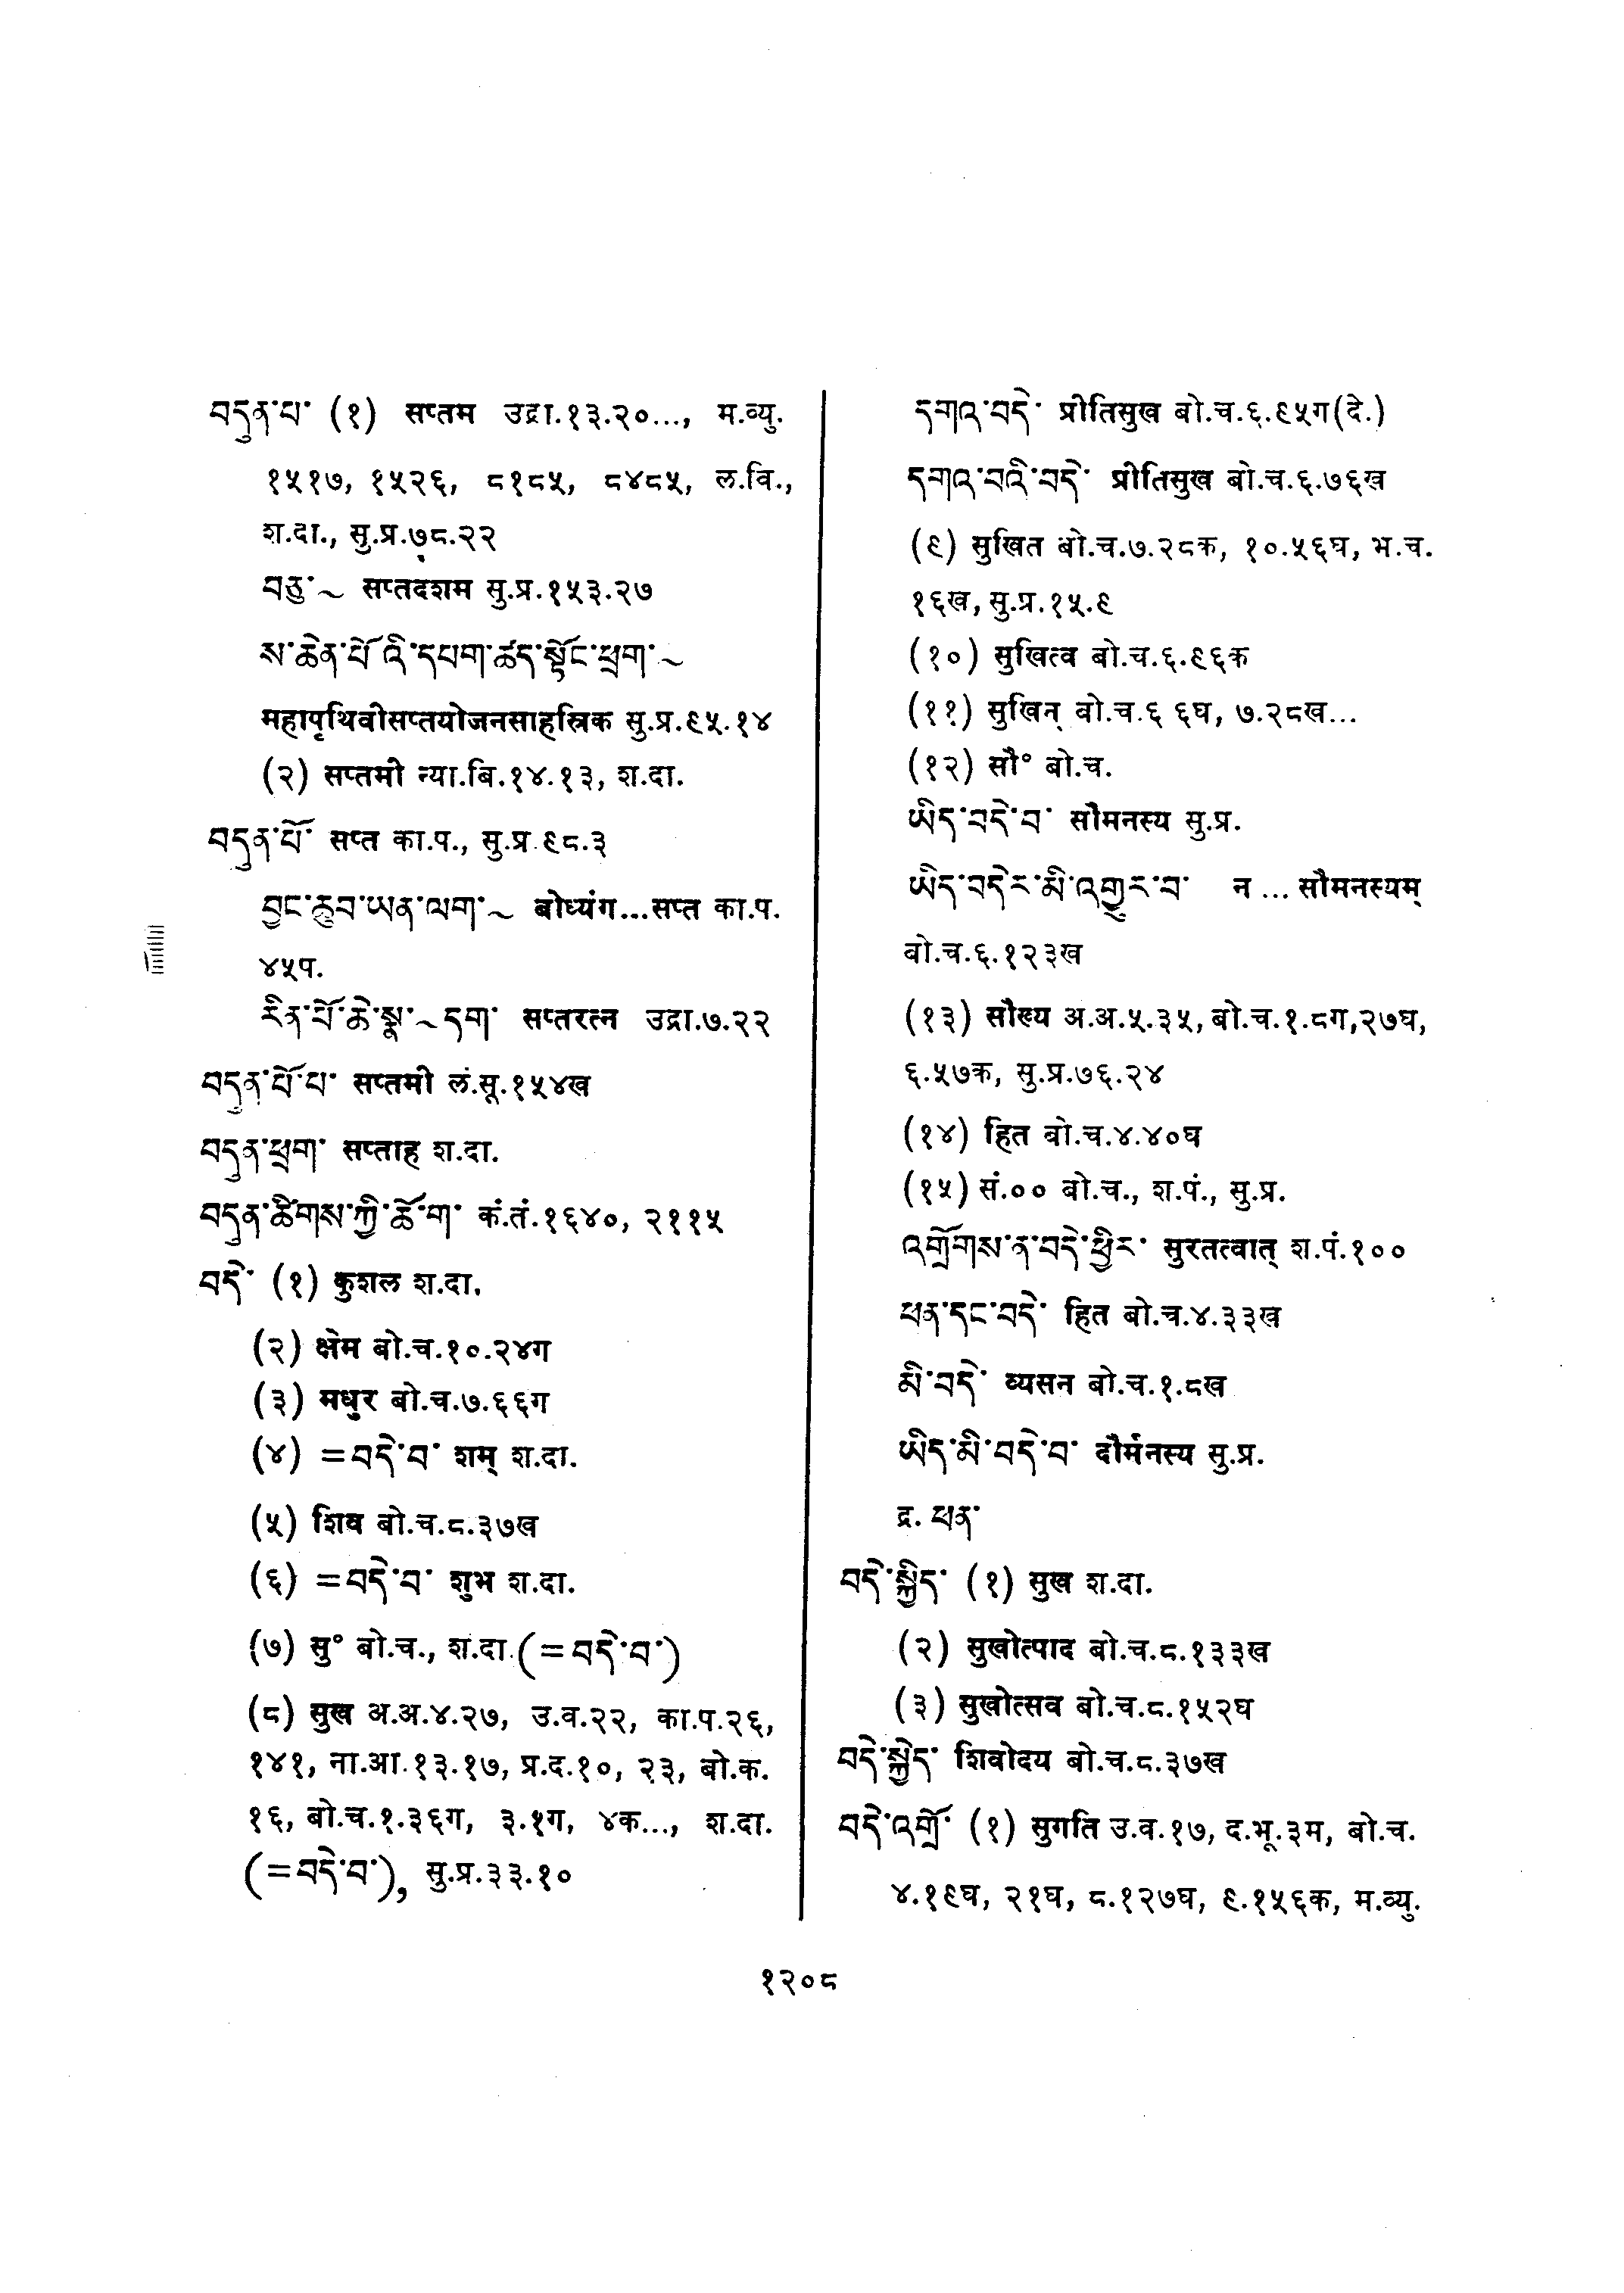 བདུན་པ་ (१) सप्तम उद्रा.१३.२०..., म.व्यु.
१५१७, १५२६, ८१८५, ८४८५, ल.वि.,
श.दा., सु.प्र.७८.२२
བཅུ་~ सप्तदशम सु.प्र.१५३.२७
ས་ཆེན་པོ་འི་དཔག་ཚད་སྟོང་ཕྲག་~
महापृथिवीसप्तयोजनसाहस्रिक सु.प्र.९५.१४
(२) सप्तमी न्या.बि.१४.१३, श.दा.
བདུན་པོ་ सप्त का.प., सु.प्र.९८.३
བྱང་ཆུབ་ཡན་ལག་~ बोध्यंग...सप्त का.प.
४५प.
རིན་པོ་ཆེ་སྣ་~དག་ सप्तरत्न उद्रा.७.२२
བདུན་པོ་པ་ सप्तमी लं.सू.१५४ख
བདུན་ཕྲག་ सप्ताह श.दा.
བདུན་ཚིགས་ཀྱི་ཆོ་ག་ कं.तं.१६४०, २११५
བདེ་ (१) कुशल श.दा.
(२) क्षेम बो.च.१०.२४ग
(३) मधुर बो.च.७.६६ग
(४) =བདེ་བ་ शम् श.दा.
(५) शिव बो.च.८.३७ख
(६) =བདེ་བ་ शुभ श.दा.
(७) सु° बो.च., श.दा.(=བདེ་བ་)
(८) सुख अ.अ.४.२७, उ.व.२२, का.प.२६,
१४१, ना.आ.१३.१७, प्र.द.१०, २३, बो.क.
१६, बो.च.१.३६ग, ३.१ग, ४क..., श.दा.
(=བདེ་བ་), सु.प्र.३३.१०
དགའ་བདེ་ प्रीतिसुख बो.च.६.९५ग(दे.)
དགའ་བའི་བདེ་ प्रीतिसुख बो.च.६.७६ख
(९) सुखित बो.च.७.२८क, १०.५६घ, भ.च.
१६ख, सु.प्र.१५.९
(१०) सुखित्व बो.च.६.९६क
(११) सुखिन् बो.च.६ ६घ, ७.२८ख...
(१२) सौ° बो.च.
ཡིད་བདེ་བ་ सौमनस्य सु.प्र.
ཡིད་བདེར་མི་འགྱུར་བ་ न ... सौमनस्यम्
बो.च.६.१२३ख
(१३) सौख्य अ.अ.५.३५, बो.च.१.८ग,२७घ,
६.५७क, सु.प्र.७६.२४
(१४) हित बो.च.४.४०घ
(१५) सं.०० बो.च., श.पं., सु.प्र.
འགྲོགས་ན་བདེ་ཕྱིར་ सुरतत्वात् श.पं.१००
ཕན་དང་བདེ་ हित बो.च.४.३३ख
མི་བདེ་ व्यसन बो.च.१.८ख
ཡིད་མི་བདེ་བ་ दौर्मनस्य सु.प्र.
द्र. ཕན་
བདེ་སྐྱིད་ (१) सुख श.दा.
(२) सुखोत्पाद बो.च.८.१३३ख
(३) सुखोत्सव बो.च.८.१५२घ
བདེ་སྐྱེད་ शिवोदय बो.च.८.३७ख
བདེ་འགྲོ་ (१) सुगति उ.व.१७, द.भू.३म, बो.च.
४.१९घ, २१घ, ८.१२७घ, ९.१५६क, म.व्यु.
१२०८